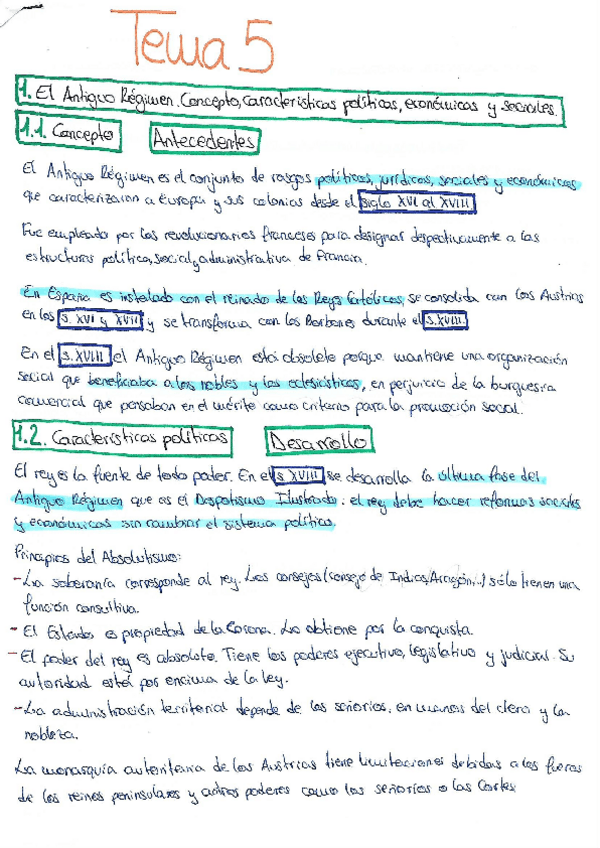 Tema 5
1. El Antiguo Régimen. Concepto, características políticas, económicas y sociales.
1.1. Concepto Antecedentes
El Antiguo Régimen es el conjunto de rasgos políticos, jurídicos, sociales y económicos
que caracterizaron a Europa y sus colonias desde el siglo XVI al XVIII.
Fue empleado por los revolucionarios franceses para designar despectivamente a las
estructuras política, social y administrativa de Francia.
En España es instalado con el reinado de los Reyes Católicos, se consolida con los Austrias
en los s. XVI y XVII y se transforma con los Borbones durante el s. XVIII.
En el s. XVIII el Antiguo Régimen está obsoleto porque mantiene una organización
social que beneficiaba a los nobles y los eclesiásticos, en perjuicio de la burguesía
comercial que pensaban en el mérito como criterio para la promoción social.
1.2. Características políticas Desarrollo
El rey es la fuente de todo poder. En el s. XVIII se desarrolla la última fase del
Antiguo Régimen que es el Despotismo Ilustrado: el rey debe hacer reformas sociales
y económicas sin cambiar el sistema político.
Principios del Absolutismo:
- La soberanía corresponde al rey. Los consejos (consejo de Indias, Aragón...) sólo tienen una
función consultiva.
- El Estado es propiedad de la Corona. Lo obtiene por la conquista.
- El poder del rey es absoluto. Tiene los poderes ejecutivo, legislativo y judicial. Su
autoridad está por encima de la ley.
- La administración territorial depende de los señoríos, en manos del clero y la
nobleza.
La monarquía autoritaria de los Austrias tiene limitaciones debidas a los fueros
de los reinos peninsulares y a otros poderes como los señoríos o las Cortes